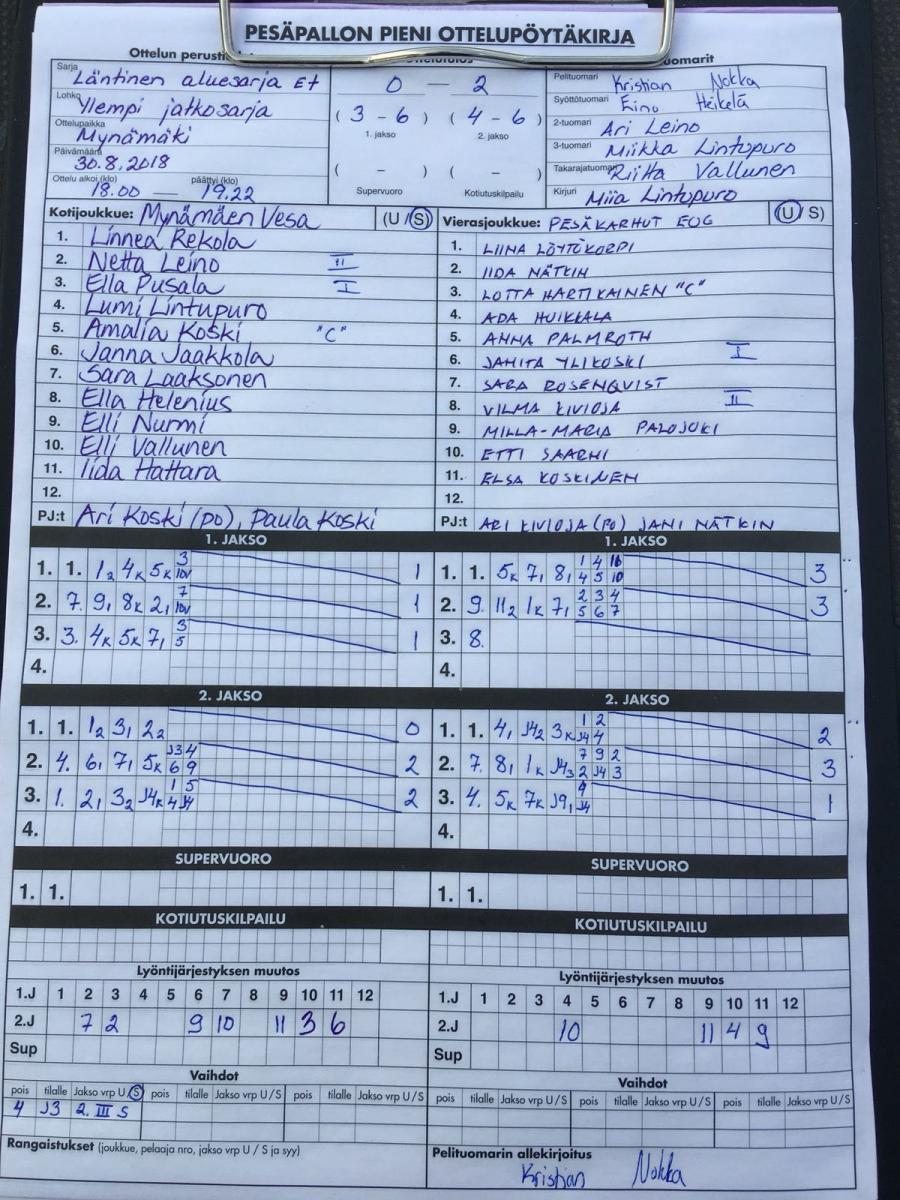 PESÄPALLON PIENI OTTELUPÖYTÄKIRJA
Ottelun
Sarja Läntinen aluesarja Et
Lohko Ylempi jatkosarja
Ottelupaikka Mynämäki
Päivämäärä 30.8.2018
Ottelu alkoi (klo) 18.00 — päättyi (klo) 19.22
0 — 2
( 3 - 6 ) ( 4 - 6 )
1. jakso 2. jakso
( - ) ( - )
Supervuoro Kotiutuskilpailu
Pelituomari Kristian Nokka
Syöttötuomari Eino Heikelä
2-tuomari Ari Leino
3-tuomari Miikka Lintupuro
Takarajatuomari Riitta Vallunen
Kirjuri Miia Lintupuro
Kotijoukkue: Mynämäen Vesa (U / S)
1. Linnea Rekola
2. Netta Leino II
3. Ella Pusala I
4. Lumi Lintupuro
5. Amalia Koski "C"
6. Janna Jaakkola
7. Sara Laaksonen
8. Ella Helenius
9. Elli Nurmi
10. Elli Vallunen
11. Iida Hattara
12.
PJ:t Ari Koski (po), Paula Koski
Vierasjoukkue: PESÄKARHUT (U / S)
1. LIINA LÖYTÖKORPI
2. IIDA NÄTKIN
3. LOTTA HARTIKAINEN "C"
4. ADA HUIKKALA
5. ANNA PALMROTH
6. JANITA YLIKOSKI I
7. SARA ROSENQVIST
8. VILMA KIVIOJA II
9. MILLA-MARIA PALOJOKI
10. ETTI SAARNI
11. ELSA KOSKINEN
12.
PJ:t ARI KIVIOJA (PO) JANI NÄTKIN
1. JAKSO
1. 1. 1₂ 4ₖ 5ₖ 3 1
2. 7. 9₁ 8ₖ 2₁ 7 1
3. 3. 4ₖ 5ₖ 7₁ 3 5 1
4.
1. JAKSO
1. 1. 5ₖ 7₁ 8₁ 1 4 4 5 10 3
2. 9. 11₂ 1ₖ 7₁ 2 3 4 5 6 7 3
3. 8.
4.
2. JAKSO
1. 1. 1₂ 3₁ 2₂ 0
2. 4. 6₁ 7₁ 5ₖ J3 4 6 9 2
3. 1. 2₁ 3₂ J4ₖ 1 5 4 J4 2
4.
2. JAKSO
1. 1. 4₁ J4₂ 3ₖ 1 2 J4 4 2
2. 7. 8₁ 1ₖ J4₃ 7 9 2 2 J4 3 3
3. 4. 5ₖ 7ₖ J9₁ 9 J4 1
4.
SUPERVUORO
1. 1.
SUPERVUORO
1. 1.
KOTIUTUSKILPAILU
KOTIUTUSKILPAILU
Lyöntijärjestyksen muutos
1.J 1 2 3 4 5 6 7 8 9 10 11 12
2.J 7 2 9 10 11 3 6
Sup
Lyöntijärjestyksen muutos
1.J 1 2 3 4 5 6 7 8 9 10 11 12
2.J 10 11 4 9
Sup
Vaihdot
pois tilalle Jakso vrp U / S pois tilalle Jakso vrp U / S pois tilalle Jakso vrp U / S
4 J3 2. III S
Vaihdot
pois tilalle Jakso vrp U / S pois tilalle Jakso vrp U / S pois tilalle Jakso vrp U / S
Rangaistukset (joukkue, pelaaja nro, jakso vrp U / S ja syy)
Pelituomarin allekirjoitus
Kristian Nokka